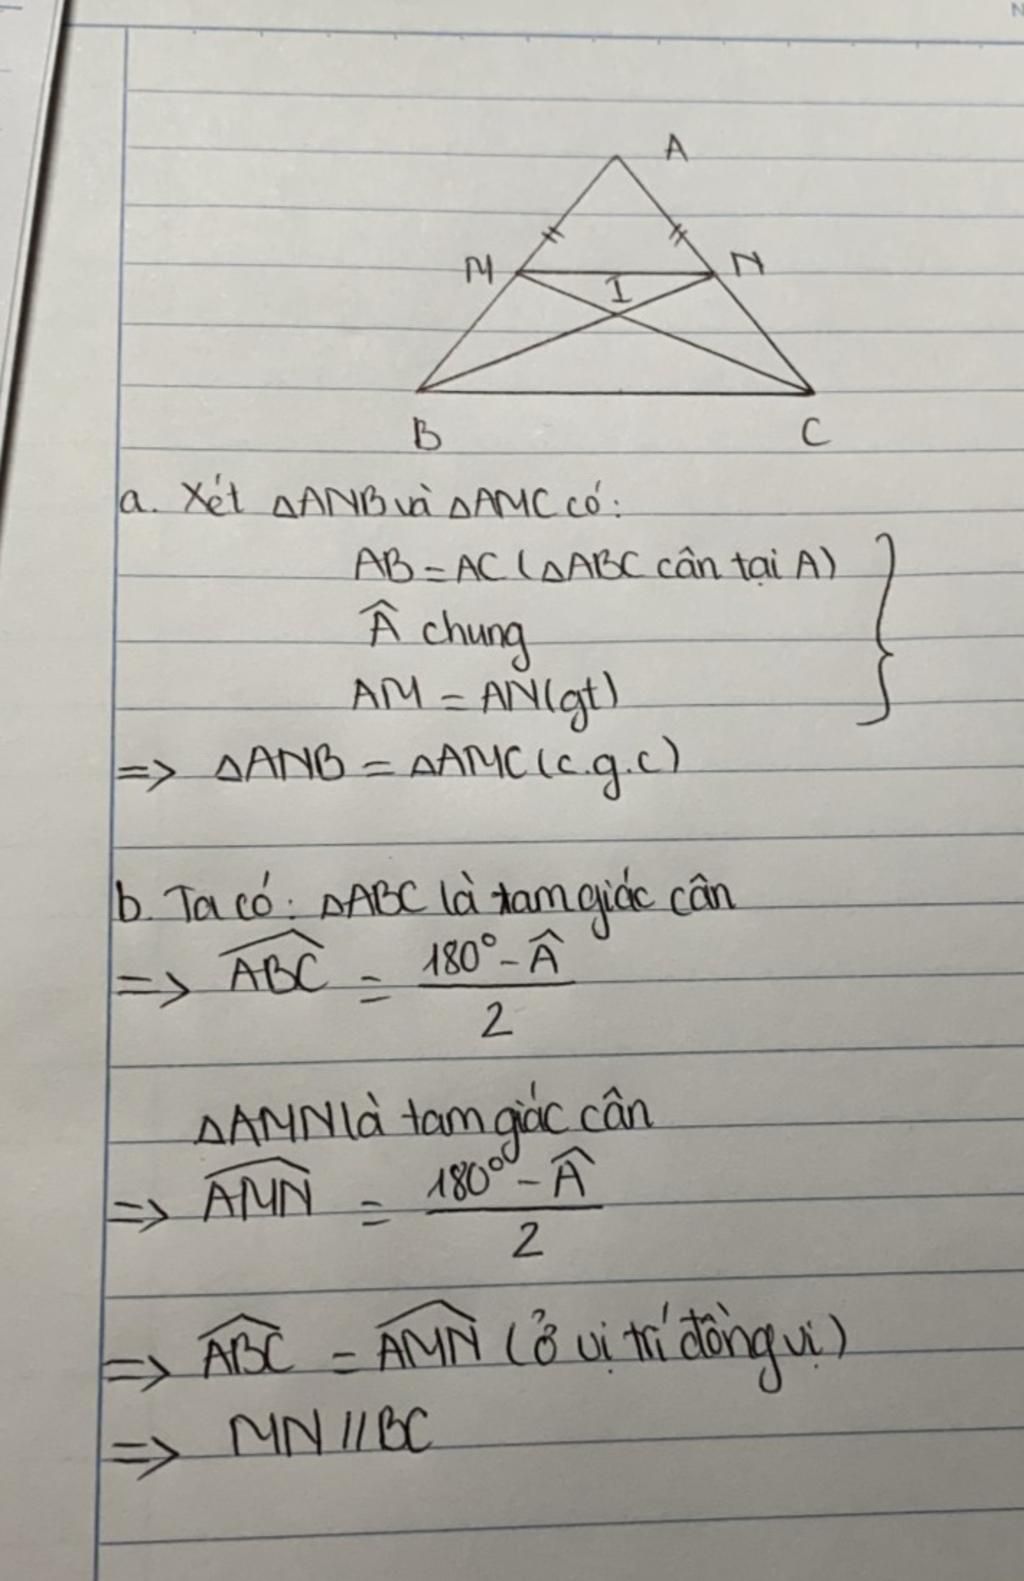 A
M
N
I
B
C
a. Xét △ANB và △AMC có:
AB = AC (△ABC cân tại A)
Â chung
AM = AN (gt)
=> △ANB = △AMC (c.g.c)
b. Ta có: △ABC là tam giác cân
=> \widehat{ABC} = \frac{180° - Â}{2}
△AMN là tam giác cân
=> \widehat{AMN} = \frac{180° - Â}{2}
=> \widehat{ABC} = \widehat{AMN} (ở vị trí đồng vị)
=> MN // BC